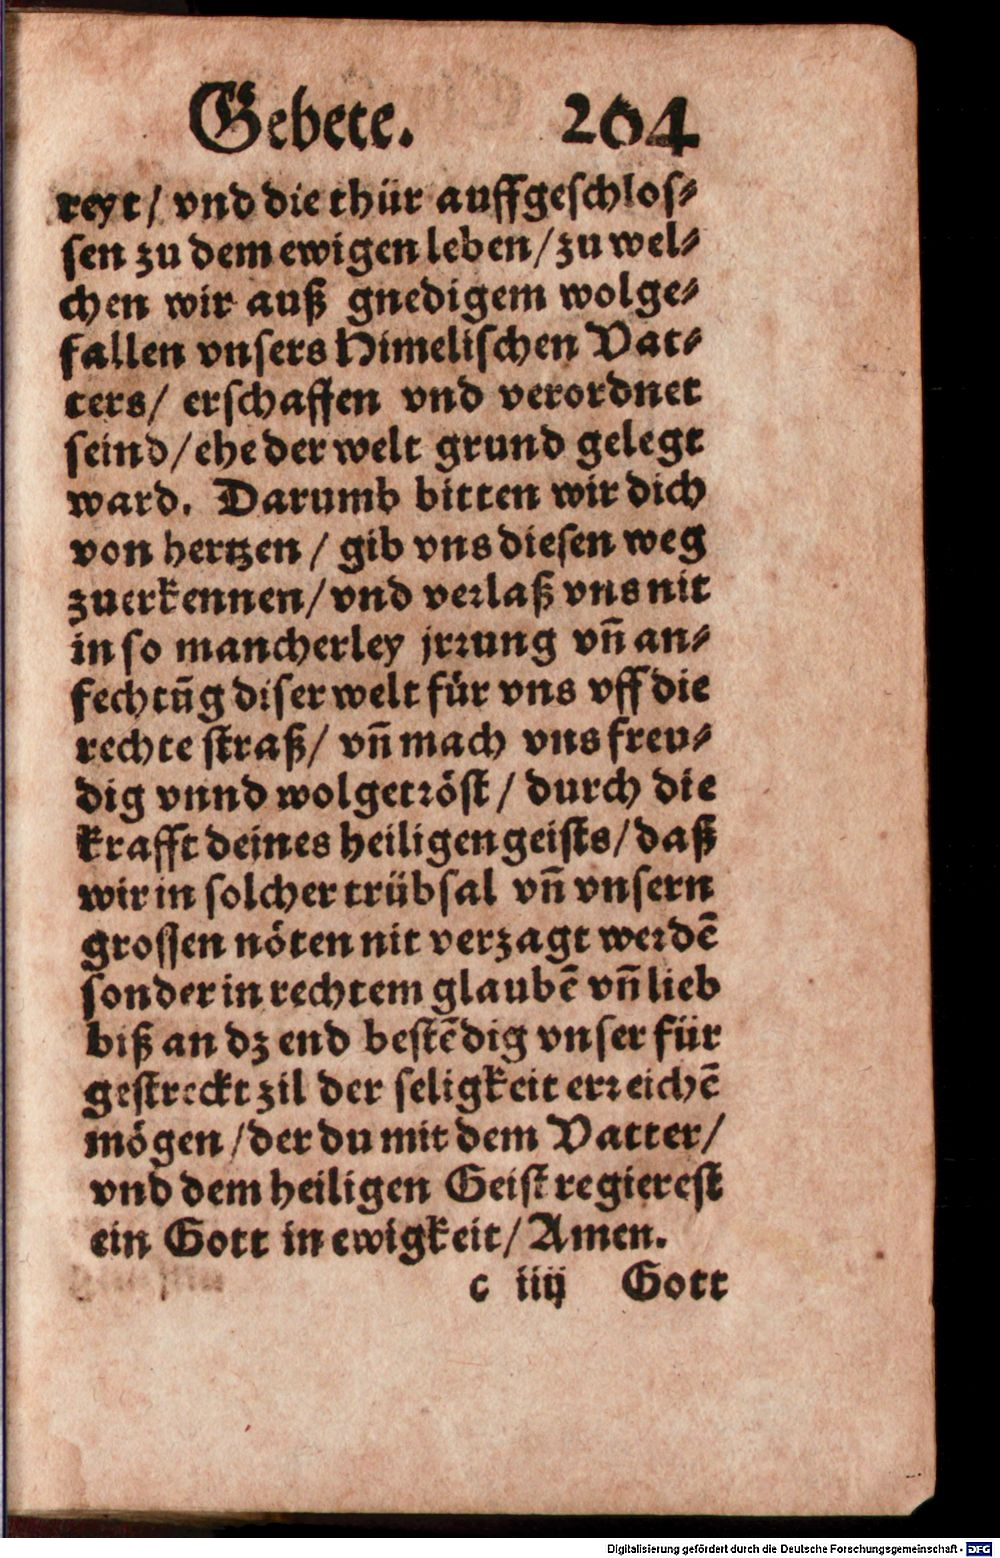 Gebete. 204
reyt/ vnd die thür auffgeschlos⸗
sen zu dem ewigen leben/ zu wel⸗
chen wir auß gnedigem wolge⸗
fallen vnsers Himelischen Vat⸗
ters/ erschaffen vnd verordnet
seind/ ehe der welt grund gelegt
ward. Darumb bitten wir dich
von hertzen / gib vns diesen weg
zuerkennen/ vnd verlaß vns nit
in so mancherley jrrung vn̄ an⸗
fechtūg diser welt für vns vff die
rechte straß/ vn̄ mach vns freu⸗
dig vnnd wolgetröst / durch die
krafft deines heiligen geists/ daß
wir in solcher trübsal vn̄ vnsern
grossen nöten nit verzagt werdē
sonder in rechtem glaubē vn̄ lieb
biß an dz end bestēdig vnser für
gestreckt zil der seligkeit erreichē
mögen / der du mit dem Vatter/
vnd dem heiligen Geist regierest
ein Gott in ewigkeit/ Amen.
c iiij Gott
Digitalisierung gefördert durch die Deutsche Forschungsgemeinschaft - DFG